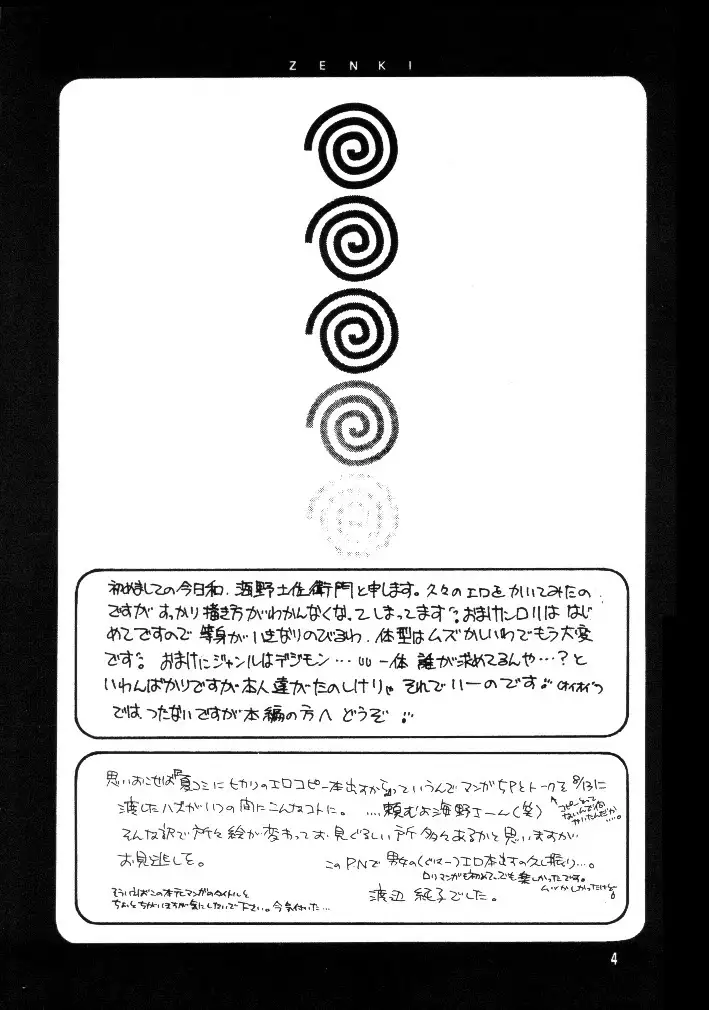 ZENKI
初めましての今日和、海野土佐衛門と申します。久々のエロをかいてみたの
ですがすっかり描き方がわかんなくなってしまってます。おまけにロリははじ
めてですので等身がいきなりのびるわ、体型はムズかしいわでもう大変
です。おまけにジャンルはデジモン…一体 誰が求めてるんや…?と
いわんばかりですが本人達がたのしけりゃ それでいーのです (オイオイ)
では、つたないですが本編の方へ どうぞ
思いおこせば『夏コミにヒカリのエロコピー本出すから』っていうんでマンガ5Pとトークを8/13に
渡したハズがいつの間にこんなコトに。 ....頼むよ海野さーん(笑)
コピーとって
ないんで何
かいたんだか
そんな訳で所々絵が変わってお見ぐるしい所多々あるかと思いますが
お見逃しを。 このPNで男女の エロ本出すの久し振り...。
ロリマンガも初めてでも楽しかったです。
ムツかしかったけど
そういえばこの本 マンガのタイトルと
ちょっとちがいますが気にしないで下さい。今気付いた...
渡辺 純子でした。
4